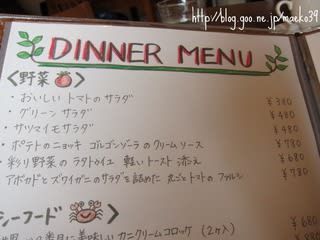 http://blog.goo.ne.jp/maeko39
DINNER MENU
<野菜>
・おいしい トマトのサラダ ¥380
・グリーン サラダ ¥480
・サツマイモサラダ ¥480
・ポテトのニョッキ ゴルゴンゾーラのクリームソース ¥780
・彩り野菜のラタトゥイユ 軽いトースト添え ¥680
アボカドとズワイガニのサラダを詰めた 丸ごとトマトのファルシ ¥780
シーフード>
美味しいカニクリームコロッケ (2ヶ入) ¥680